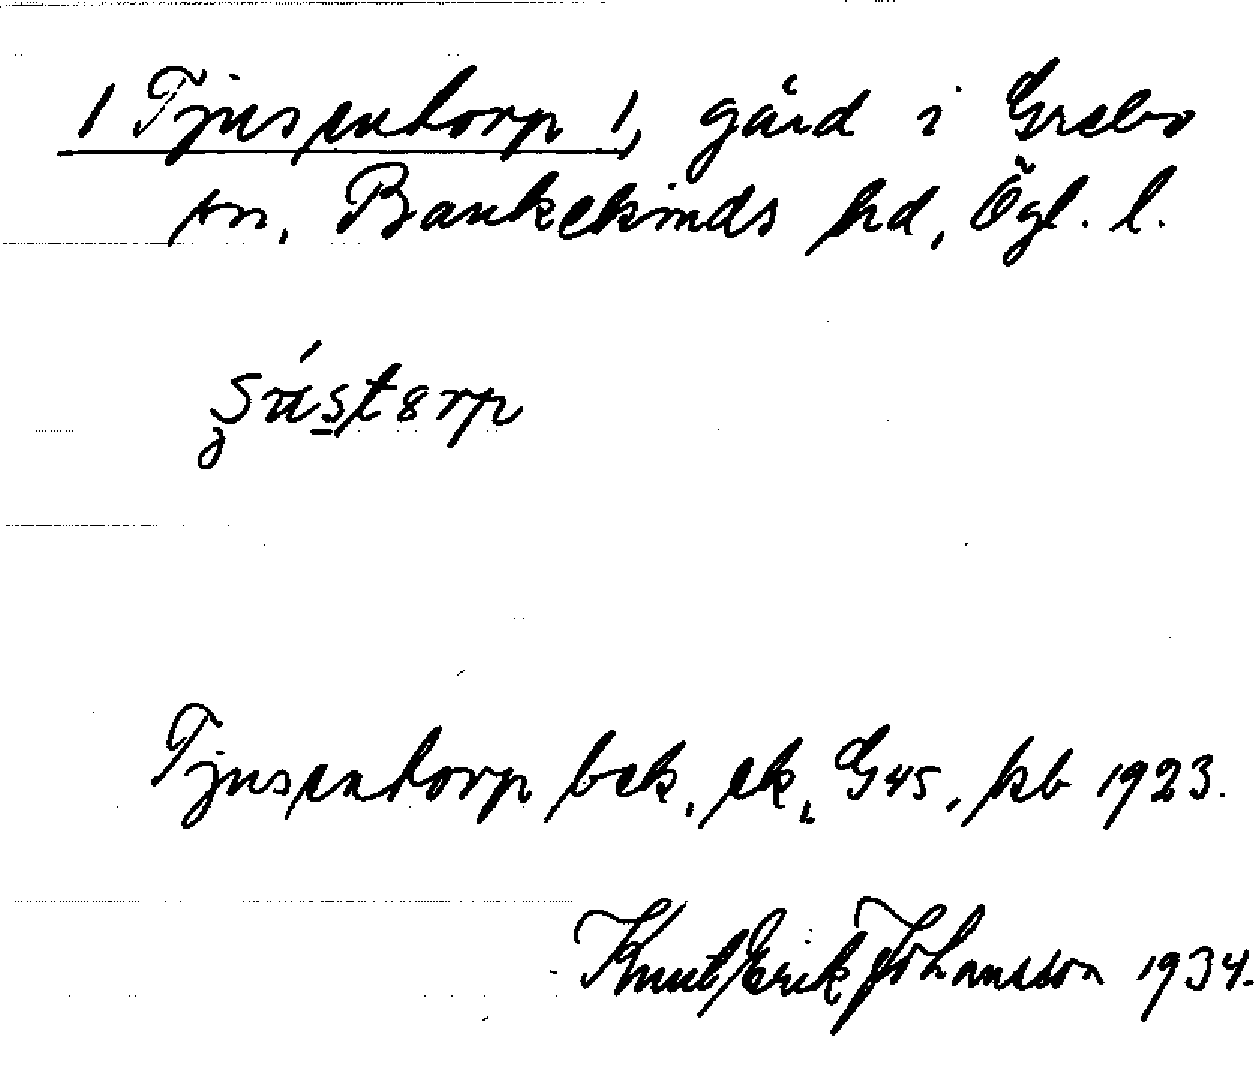 / Tjusentorp /, gård i Grebo
sn, Bankekinds hd, Ögl. l.
Tjusentorp bek, ek, G45, kb 1923.
Knut Erik Johansson 1934.